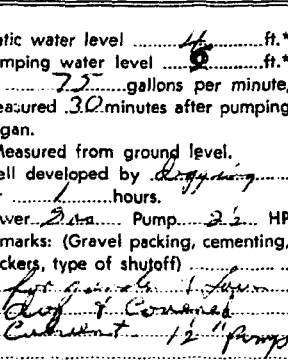 atic water level 4 ft.*
mping water level ft.*
75 gallons per minute,
easured 30 minutes after pumping
gan.
Measured from ground level.
ell developed by
r 1 hours.
wer Gas Pump 2½ HP
marks: (Gravel packing, cementing,
ckers, type of shutoff)
for
dug & Covered
1½" pump